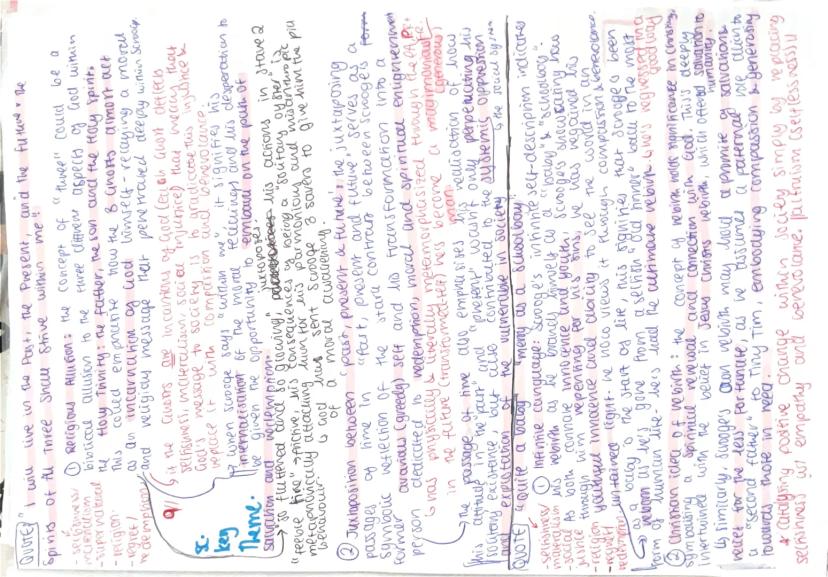 QUOTE: "I will live in the Past, the Present, and the Future. The
Spirits of the Three shall strive within me!"
- selfishness/
materialism
- supernatural
- religion
- regret/
redemption
① Religious Allusion: the concept of "three" could be a
biblical allusion to the three different aspects of God within
the Holy Trinity: the father, the son and the Holy Spirit.
This could emphasise how the 3 ghosts almost act
as an incarnation of God himself - relaying a moral
and religious message that penetrated deeply within Scrooge.
↳ if the Ghosts are incarnations of God
selfishness, materialism, social injustice
God's message to society is to eradicate this injustice &
replace it with compassion and benevolence.
key
Theme.
↳ when Scrooge says "within me" it signifies his
internalisation of the moral teachings and his desperation to
be given the opportunity to embark on the path of
salvation and redemption.
his actions in Stave 2
consequences of being a "solitary oyster" is
"feeble fire"
metaphorically attacking him for his parsimonious and misanthropic
behaviour
↳ God has sent Scrooge 3 saviours to give him the
of a moral awakening.
② Juxtaposition between "past, present & future": the juxtaposing
passages of time in "past, present and future" serves as a
symbolic reflection of the stark contrast between Scrooge's
former avarous (greedy) self and his transformation into a
person dedicated to redemption, moral and spiritual enlightenment
↳ has physically & literally metamorphisised through the
in the future (transformed) he's become a magnanimous
(generous) man.
↳ the passage of time also emphasises realisation of how
his attitude in the "past" and "present" was only perpetuating his
solitary existence but also contributed to the systemic oppression
and exploitation of the vulnerable in society
QUOTE: "quite a baby" "merry as a schoolboy"
- selfishness/
materialism
- social
justice
- religion
- regret/
redemption
① Infinitive language: Scrooge's infinitive self-description indicates
his rebirth as he brands himself as a "baby" & "schoolboy".
As both connote innocence and youth,
through him repenting for his sins, he has regained his
youthful innocence and ability to see the world in an
untainted light - he now views it through compassion & benevolence.
↳ as a "baby" is the start of life, this signifies that Scrooge's been
reborn as he's gone from a selfish "old sinner" back to the most
form of human life - he's had the ultimate rebirth (he's regressed in a
good way)
② Christian idea of rebirth: the concept of rebirth holds significance in Christianity,
symbolising a spiritual renewal and connection with God. This is deeply
intertwined with the belief in Jesus Christ's rebirth, which offered salvation to
humanity.
↳ Similarly, Scrooge's own rebirth may hold a promise of salvation &
relief for the less fortunate, as he assumed a paternal role akin to
a "second father" to Tiny Tim, embodying compassion & generosity
towards those in need.
* catalysing positive change within society simply by replacing
selfishness w/ empathy and benevolence. [altruism (selflessness)]